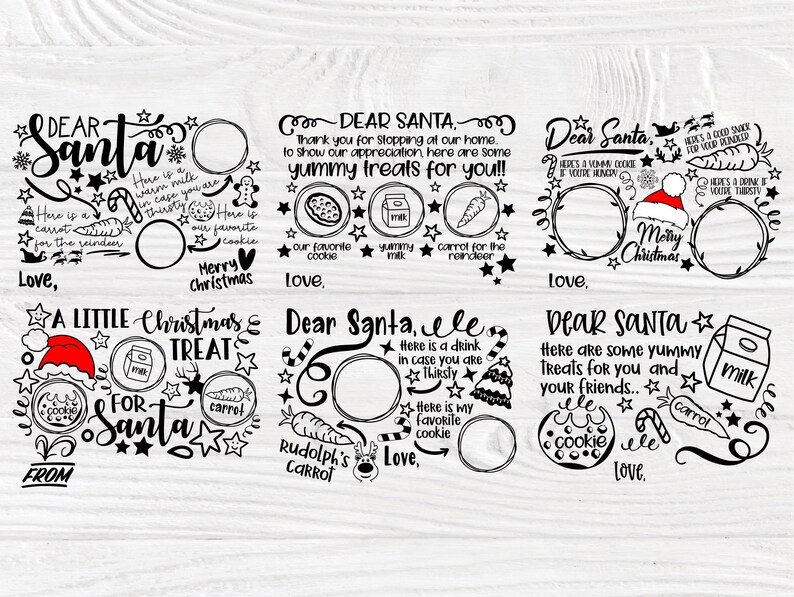 DEAR
Santa
Here is a
warm milk
in case you are
thirsty
Here is a
carrot
for the reindeer
Here is
our favorite
cookie
Merry
Christmas
Love,
DEAR SANTA,
Thank you for stopping at our home..
to show our appreciation, here are some
yummy treats for you!!
milk
our favorite
cookie
yummy
milk
carrot for the
reindeer
Love,
Dear Santa,
HERE'S A GOOD SNACK
FOR YOUR REINDEER
HERE'S A YUMMY COOKIE
IF YOU'RE HUNGRY
HERE'S A DRINK IF
YOU'RE THIRSTY
Merry
Christmas
Love,
A LITTLE Christmas
TREAT
milk
cookie
carrot
FOR
Santa
FROM
Dear Santa,
Here is a drink
in case you are
thirsty
Here is my
favorite
cookie
Rudolph's
Carrot
Love,
DEAR SANTA
Here are some yummy
treats for you and
your friends..
milk
carrot
cookie
Love,